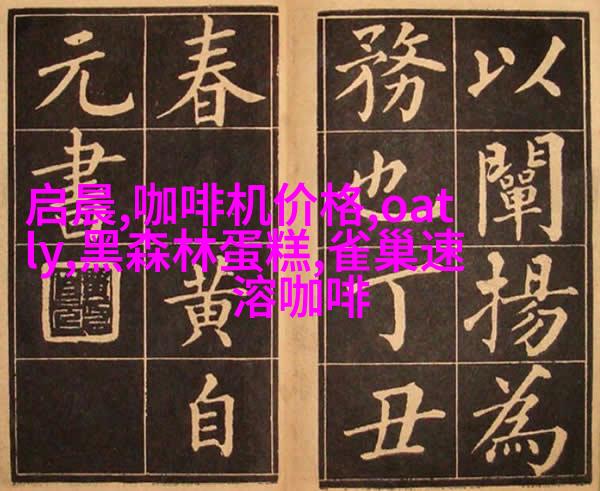 以闡揚為
務也丁丑
春黃自
元書
启晨,咖啡机价格,oat
ly,黑森林蛋糕,雀巢速
溶咖啡